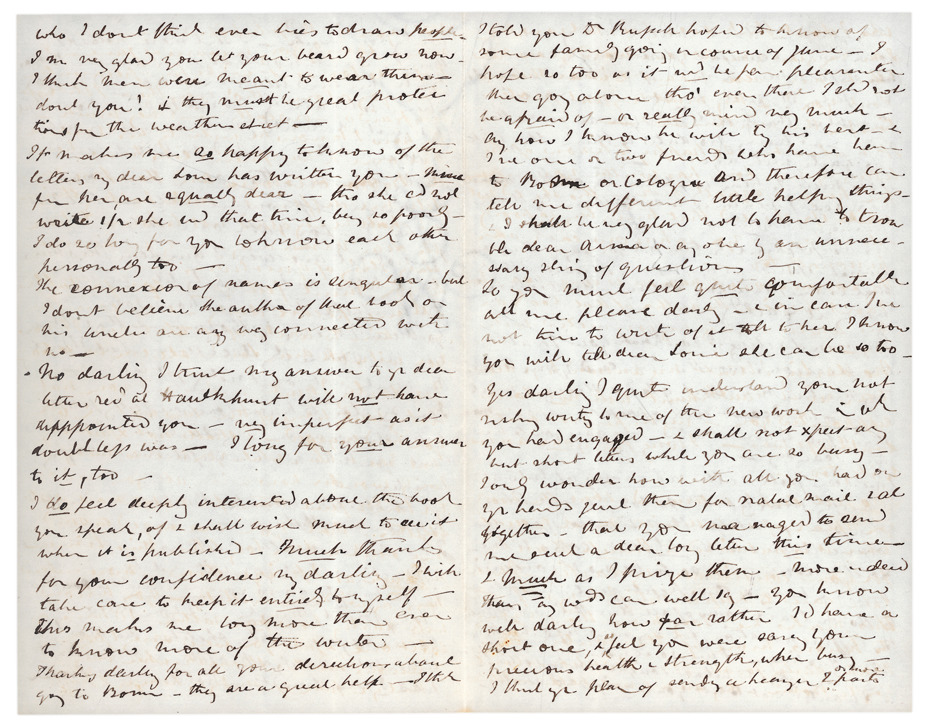 who I don't think even tries to draw people.
I'm very glad you let your beard grow now.
I think men were meant to wear them—
dont you? & they must be great protec
tion fm the weather etset —
It makes me so happy to know of the
letters my dear Louie has written you — mine
fm her are equally dear — tho she cd not
write 1/2 she wd that time, being so poorly —
I do so long for you to know each other
personally too —
The connexion of names is singular — but
I don't believe the author of that book or
his uncle are any way connected with
us —
No darling I trust my answer to yr dear
letter recd at Hawkhurst will not have
disappointed you — very imperfect as it
doubtless was — I long for your answer
to it, too —
I do feel deeply interested about the book
you speak of & shall wish much to see it
when it is published — Much thanks
for your confidence my darling — I wish
take care to keep it entirely to myself —
This makes me long more than ever
to know more of the writer —
Thanks darling for all your directions about
going to Bonn — they are a great help — I thk
I told you Dr hoped to know of
some family going in course of June — I
hope so too as it wd be far pleasanter
than going alone tho' even there I shd not
be afraid of — or really mind very much —
any how I know he will try his best — &
I've one or two friends who have been
to Bonn or Cologne and therefore can
tell me different little helpful things.
& I shall be very glad not to have to trou
ble dear Anna or any one by an unnece-
ssary string of questions —
So you must feel quite comfortable
abt me please darling — & in case I've
not time to write of it to her I know
you will tell dear Louie she can be so too —
Yes darling I quite understand your not
writing to me of the new work in wh
you had engaged — & shall not xpect any
but short letters while you are so busy —
I only wonder how with all you had on
yr hands just then for natal mail & al
together — that you managed to send
me such a dear long letter this time —
& Much as I prize them — more indeed
than any wds can well say — you know
well darling how far rather I'd have a
short one, & feel you were saving your
precious health & strength, when busy
I think yr plan of sending a heavier 2 parts
or more